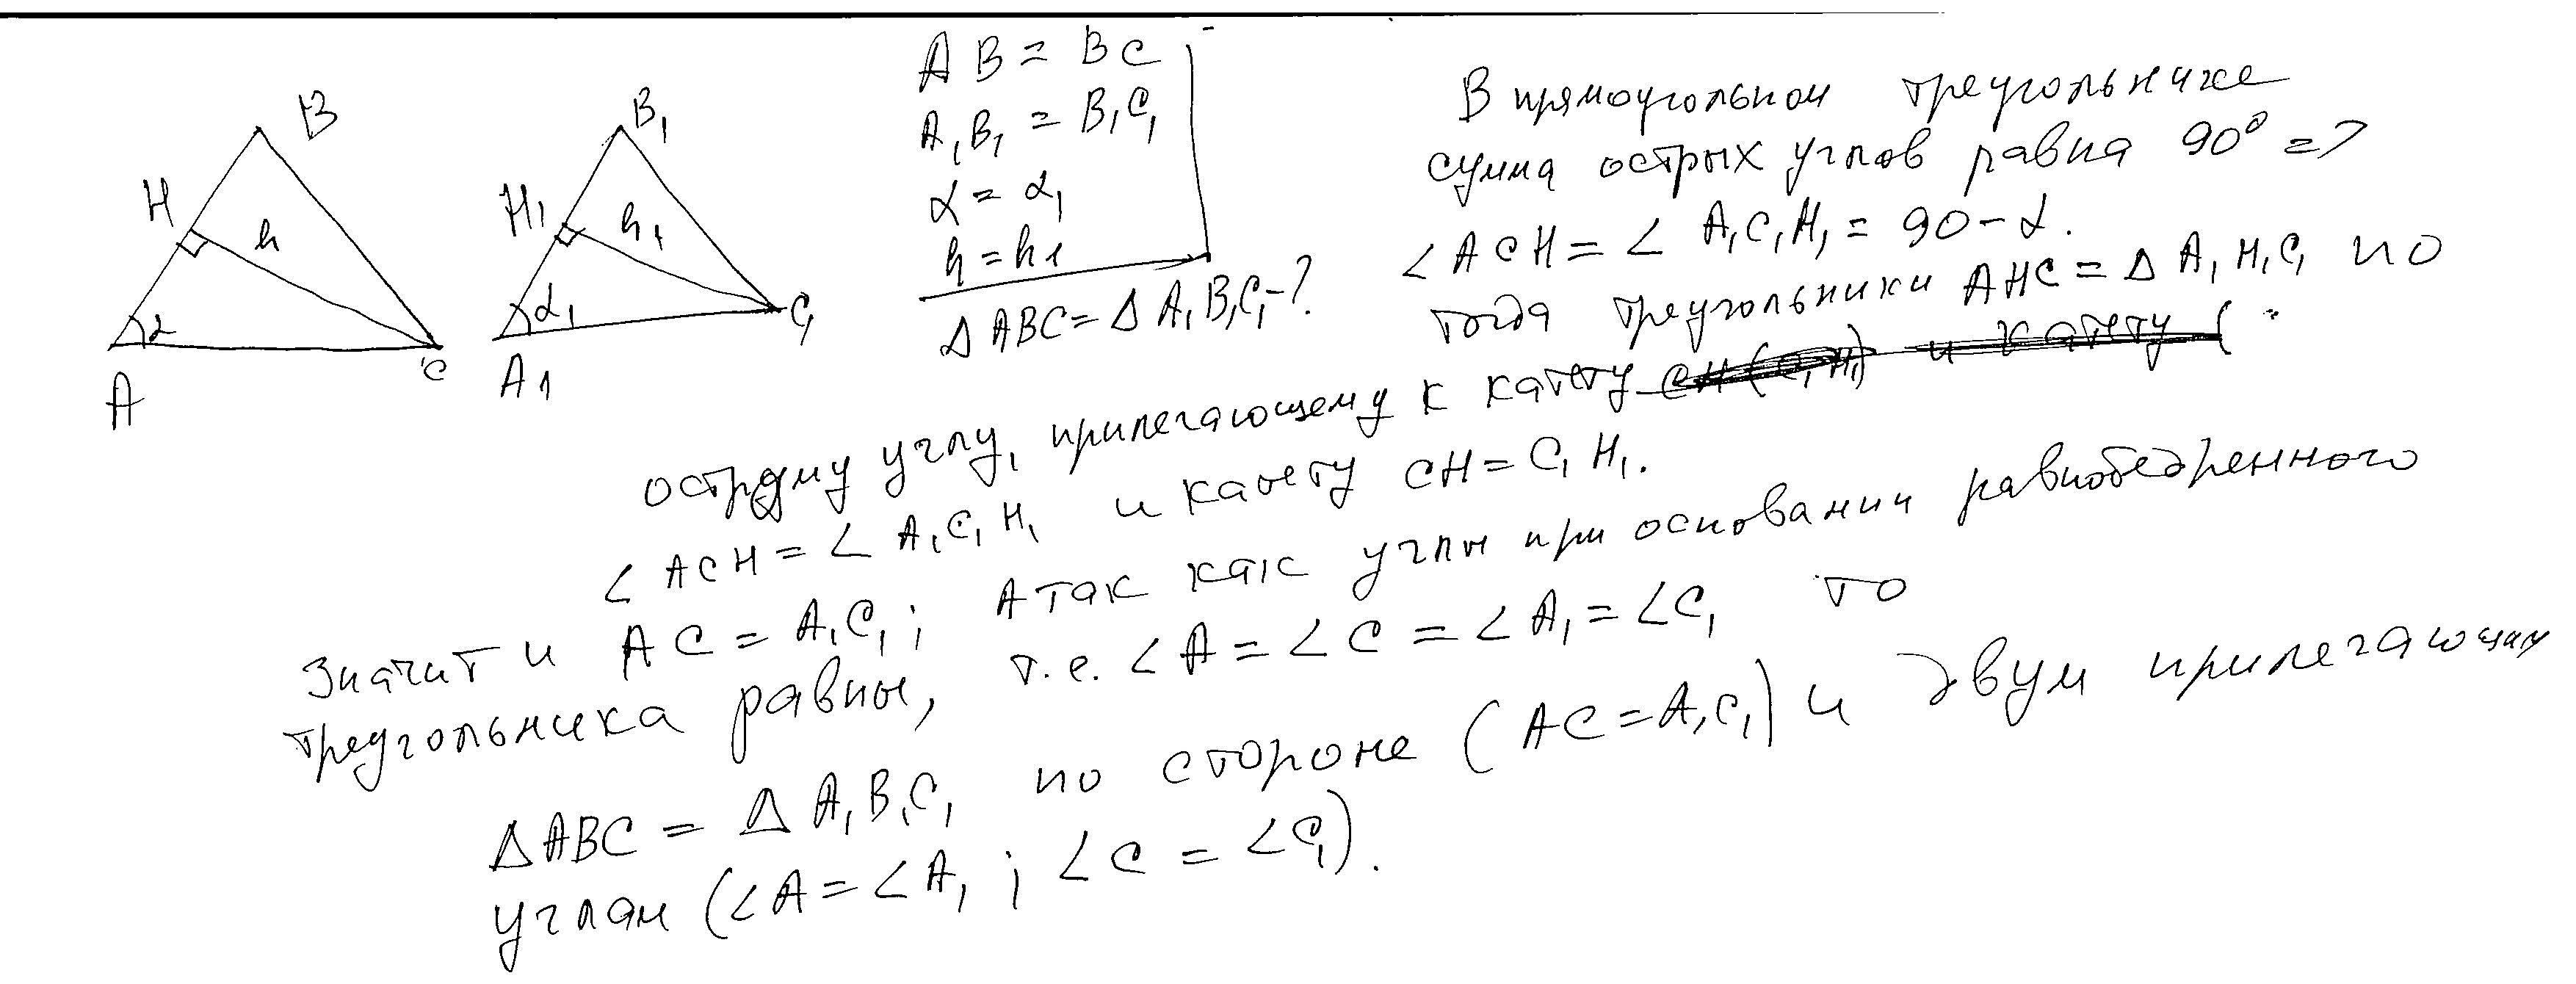 B
H
h
α
A
C
B₁
H₁
h₁
α₁
A₁
C₁
AB = BC
A₁B₁ = B₁C₁
α = α₁
h = h₁
Δ ABC = Δ A₁B₁C₁ - ?
В прямоугольном треугольнике
сумма острых углов равна 90° =>
∠ACH = ∠ A₁C₁H₁ = 90 - α.
тогда треугольники AHC = Δ A₁H₁C₁ по
острому углу, прилегающему к катету CH (C₁H₁) и катету (
∠ACH = ∠ A₁C₁H₁ и катету CH = C₁H₁.
Значит и AC = A₁C₁; а так как углы при основании равнобедренного
треугольника равны, т.е. ∠A = ∠C = ∠A₁ = ∠C₁ то
ΔABC = Δ A₁B₁C₁ по стороне (AC = A₁C₁) и двум прилегающим
углам (∠A = ∠A₁; ∠C = ∠C₁).